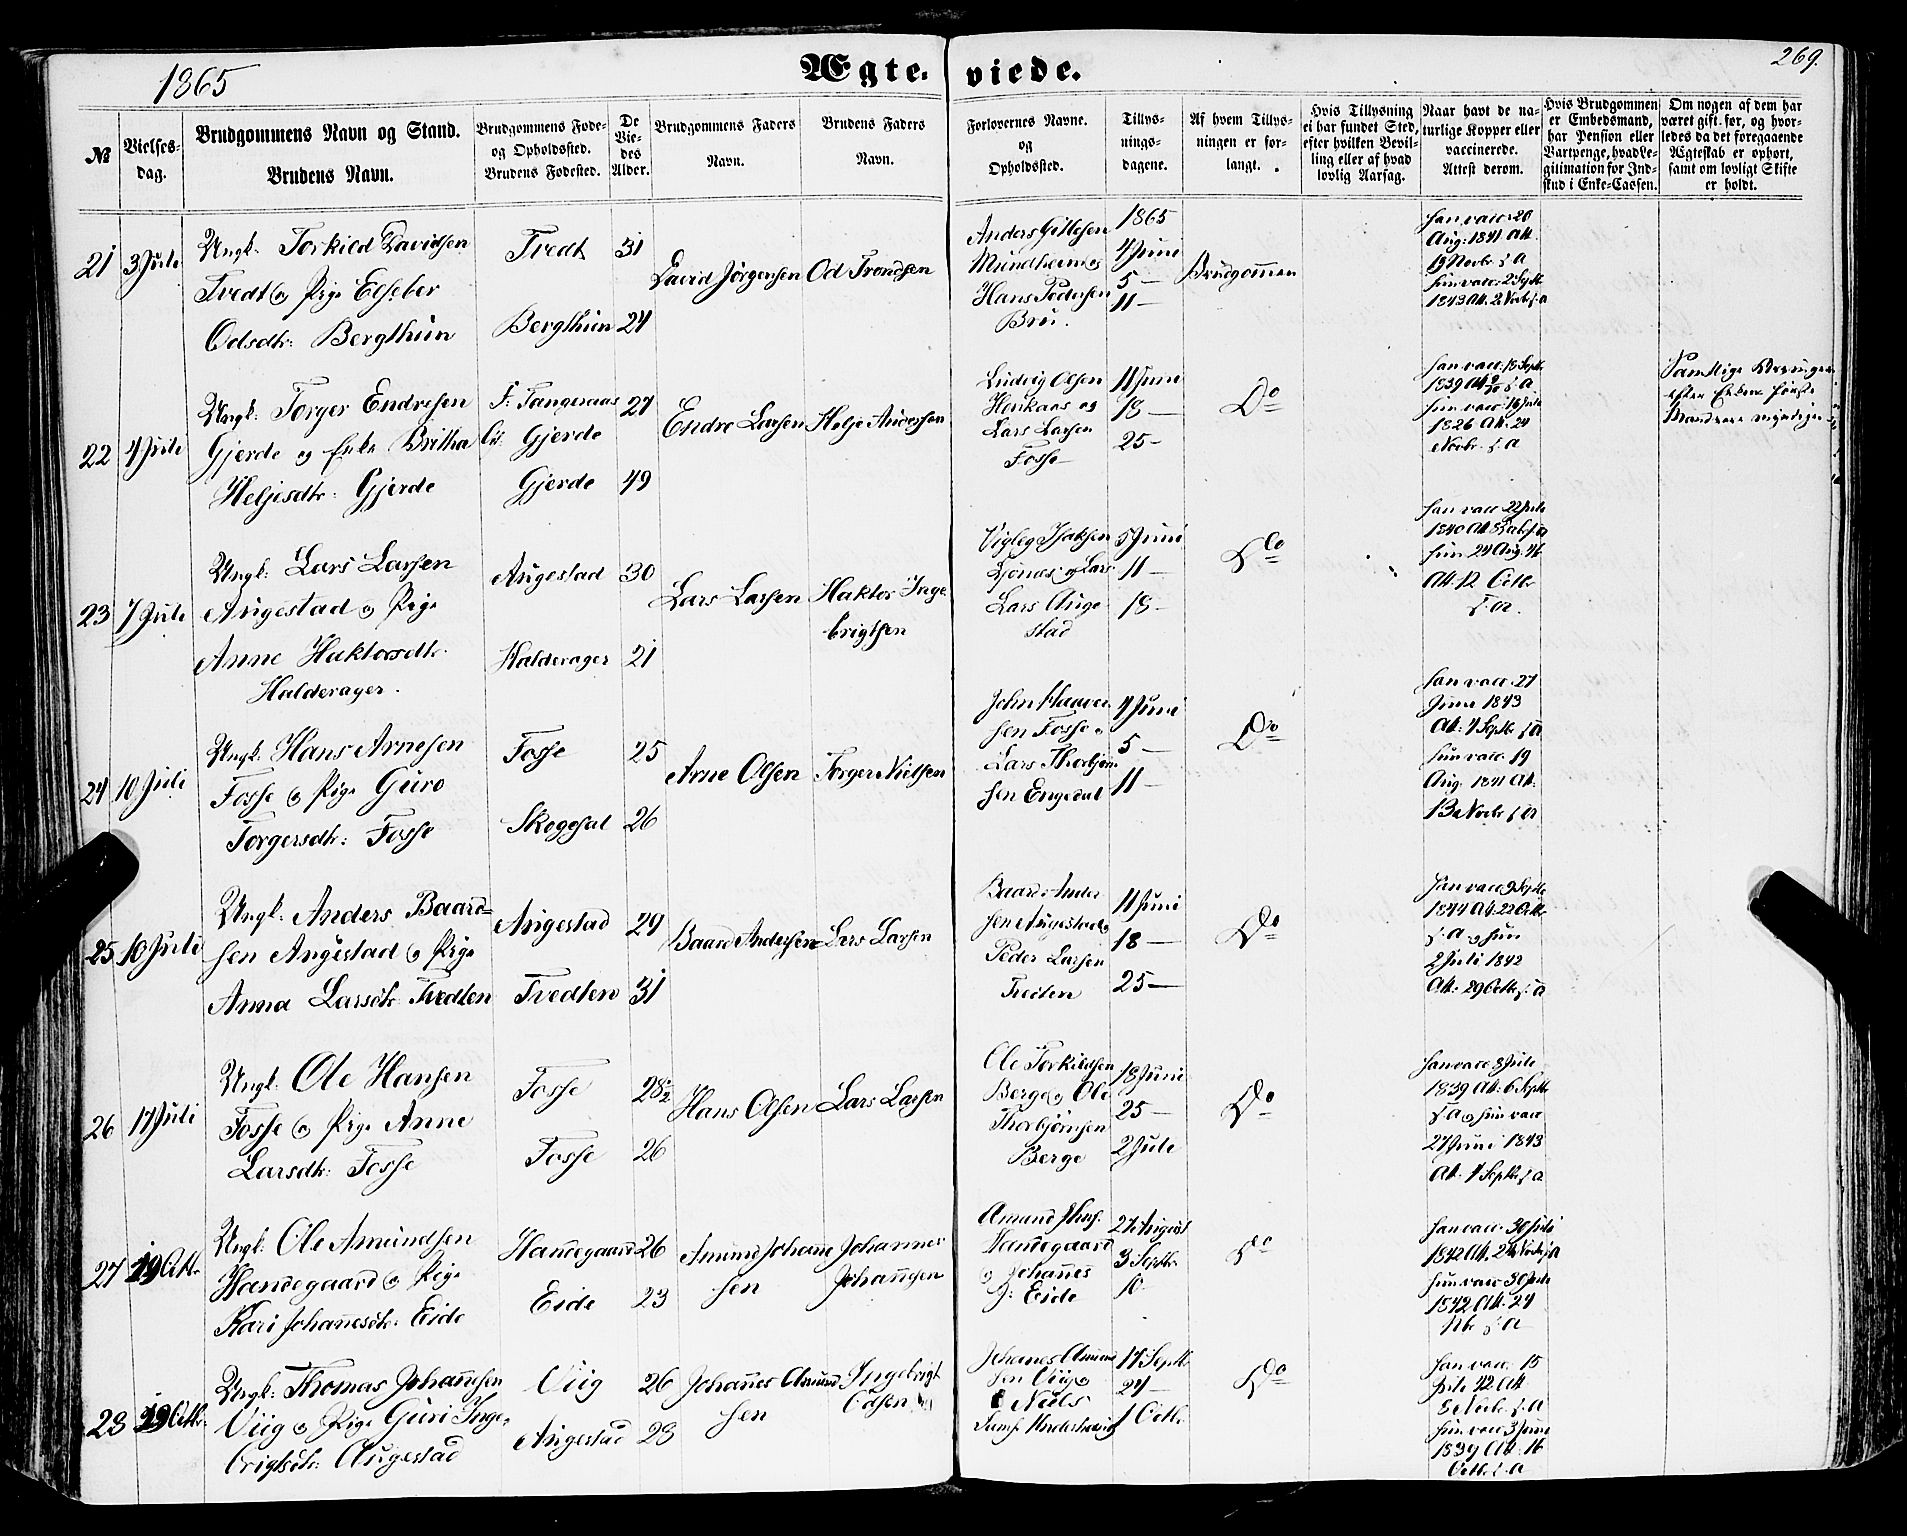 1865
Ægte-
viede.
269.
№
Vielses-
dag.
Brudgommens Navn og Stand.
Brudens Navn.
Brudgommens Føde-
og Opholdssted.
Brudens Fødested.
De
Vie-
des
Alder.
Brudgommens Faders
Navn.
Brudens Faders
Navn.
Forlovernes Navne.
og
Opholdssted.
Tillys-
nings-
dagene.
Af hvem Tillys-
ningen er for-
langt.
Hvis Tillysning
ei har fundet Sted,
efter hvilken Bevil-
ling eller af hvad
lovlig Aarsag.
Naar havt de na-
turlige Kopper eller
vaccinerede.
Attest derom.
Hvis Brudgommen
er Embedsmand,
har Pension eller
Vartpenge, hvad Le-
gitimation for Ind-
skud i Enke-Cassen.
Om nogen af dem har
været gift før, og hvor-
ledes da det foregaaende
Ægteskab er ophørt,
samt om lovligt Skifte
er holdt.
21
3 Juli
Ungk: Torkild Davidsen
Tvedt og Pige Elseber
Odsdtr: Bergthun
Tvedt
Bergthun
31
24
David Jørgensen
Od Trondsen
Anders Gitlesen
Mundheim og
Hans Pedersen
Bru.
1865
4 Juni
5 —
11 —
Brudgommen
han vacc. 20
Aug: 1841 Att.
19 Novbr. s. A
hun vacc. 2 Septr
1843 Att. 2 Novbr s. A
22
4 Juli
Ungk: Torger Endresen
Gjerde og Enke Britha
Heljesdtr: Gjerde
F: Tangeraas
Gjerde
Gjerde
27
49
Endre Larsen
Helje Andersen
Ludvig Olsen
og
Lars Larsen
Fosse
11 Juni
18 —
25 —
Do
han vacc. 18 Septr
1839 Att.
hun vacc. 16 Juli
1826 Att. 24
Novbr. s. A
efter Enkens første
23
7 Juli
Ungk: Lars Larsen
Augestad og Pige
Anne Haktorsdtr.
Halderager.
Augestad
Halderager
30
21
Lars Larsen
Haktor Inge
brigtsen
Vigleg Isaksen
og Lars
Lars Auge
stad
5 Juni
11 —
18 —
Do
han vacc 22 Juli
1840 Att.
hun 24 Aug. 46
Att. 12 Octbr
s. A.
24
10 Juli
Ungk: Hans Arnesen
Fosse og Pige Guro
Torgersdtr: Fosse
Fosse
Skogesal
25
26
Arne Olsen
Torger Nielsen
John Haaver
sen Fosse og
Lars Thorbjørn
sen Engedal
4 Juni
5 —
11 —
Do
han vacc. 27
Juni 1843
Att: 4 Septr s. A
hun vacc. 19
Aug. 1841 Att.
13 Novbr s. A
25
10 Juli
Ungk: Anders Baard-
sen Augestad og Pige
Anna Larsdtr Tvedten
Augestad
Tvedten
29
31
Baard Andersen
Lars Larsen
Baard Ander
sen Augestad og
Peder Larsen
Tvedten
11 Juni
18 —
25 —
Do
han vacc 9 Septr
1844 Att. 22 Octbr
s. A og hun
2 Juli 1842
Att. 29 Octbr s. A
26
17 Juli
Ungk: Ole Hansen
Fosse og Pige Anne
Larsdtr: Fosse
Fosse
Fosse
28½
26
Hans Olsen
Lars Larsen
Ole Torkildsen
Berge og Ole
Thorbjørnsen
Berge
18 Juni
25 —
2 Juli
Do
han vacc 8 Juli
1839 Att. 6 Septr
s. A og hun vacc
27 Juni 1843
Att. 4 Septr s. A
27
19 Octbr.
Ungk: Ole Amundsen
Handegaard og Pige
Kari Johanesdtr. Eide
Handegaard
Eide
26
23
Amund Johane
sen
Johannes
Johanesen
Amund Johs.
Handegaard
og Johanes
J: Eide
27 August
3 Septbr.
10.
Do
han vacc. 30 Juli
1842 Att. 24 Novbr s. A
hun vacc 30 Juli
1842 Att. 24
Nbr. s. A
28
19 Octbr.
Ungk: Thomas Johanesen
Viig og Pige Guri Inge-
brigtsdtr: Augestad
Viig
Augestad
26
28
Johanes Amund
sen
Ingebrigt
Odsen
Johanes Amund
sen Viig og
Neels
17 Septbr
24 —
1 Octbr.
Do
han vacc. 15
Juli 42 Att.
8 Novbr. s. A
hun vacc 3 Juni
1839 Att. 16
Octbr. s. A